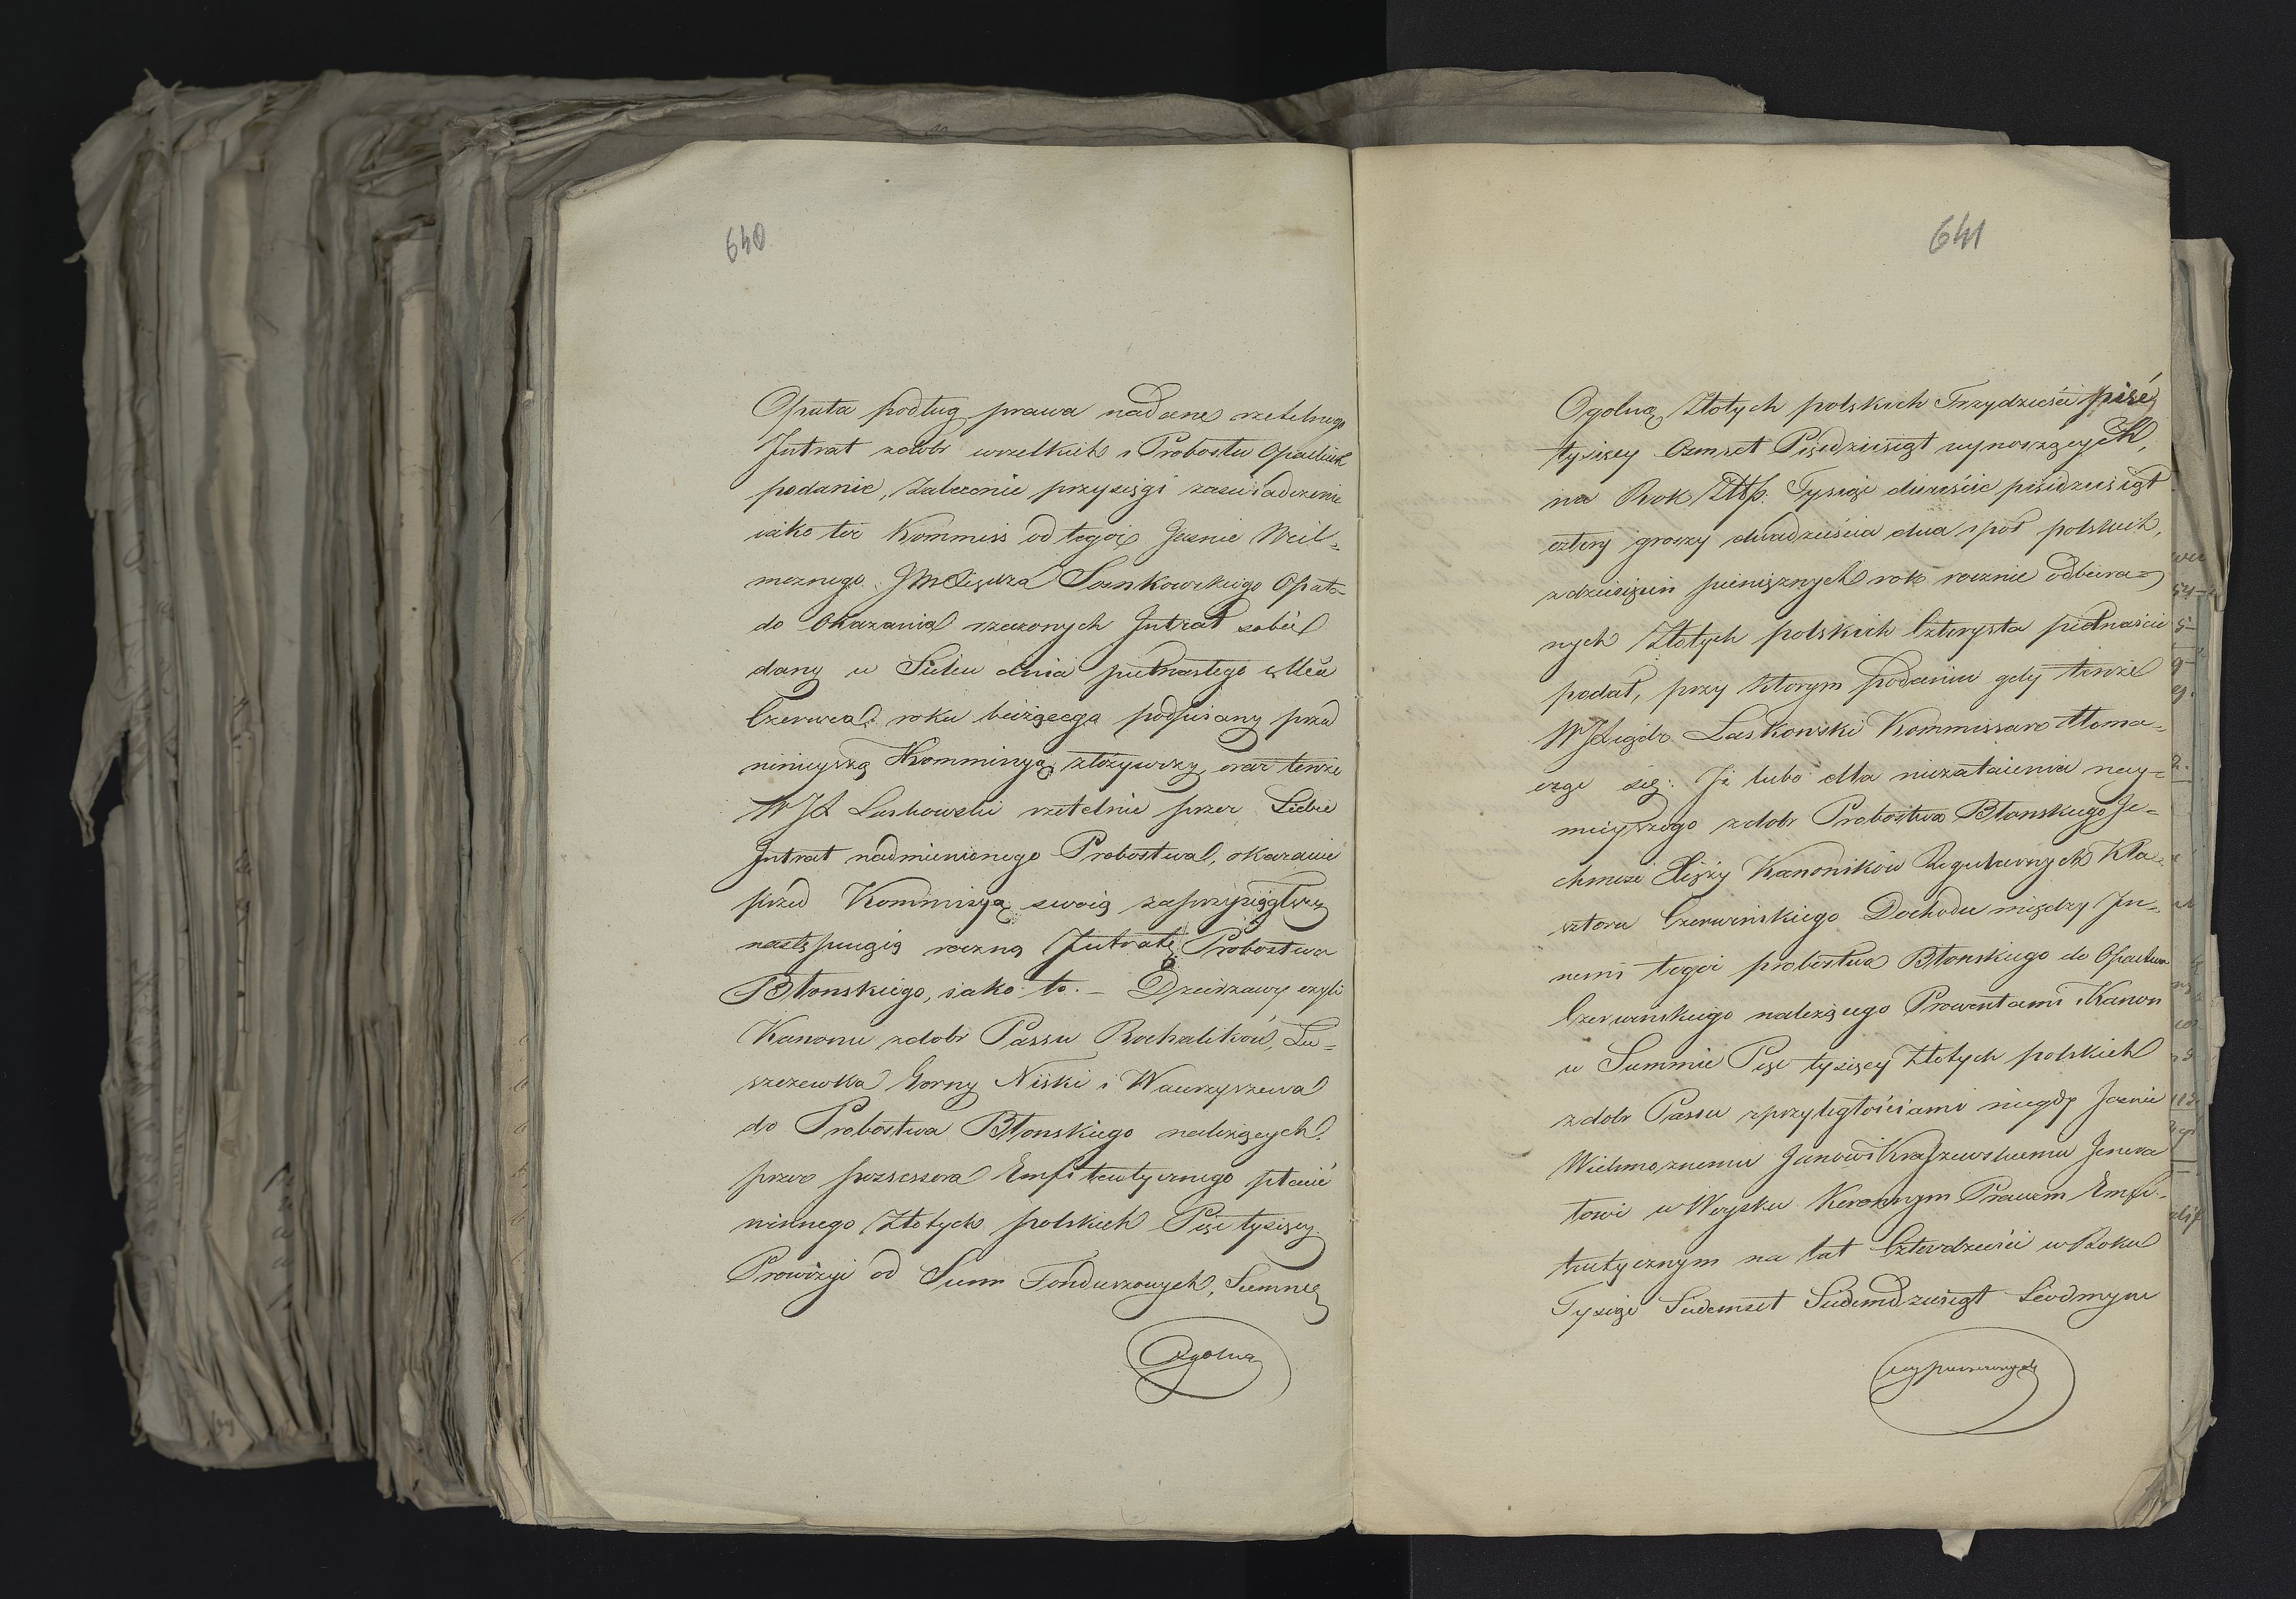 640
Opata podług prawa nadane rzetelnego
Intrat zdobr wrzelkich i Probostw Opackich
podanie, Zalecenie przysięgi zaswiadczenie
iako też Kommiss od tegoż Jasnie Wiel-
moznego JmXiędza Opata-
do Okazania rzeczonych Intrat sobie
dany w dnia pietnastego Mca
Czerwca roku bieżącego podpisany przed
nınieyszą Kommissyą złożywszy oraz tenże
WJX Laskowski rzetelnie przez Siebie
Intrat nadmienionego Probostwa, okazanie
przed Kommissyą swoią zaprzysiągłszy
następuiącą roczną Intratę Probostwa
Błonskiego, iako to. – Dzierzawy czyli
Kanonu zdobr Passu Rochalików, Lu-
szczewka Gorny Niski i Wawrzyszewa
do Probostwa Błonskiego należących
przez possessora Emfiteutycznego płacić
winnego Złotych polskich Pięć tysięcy
Prowizyi od Summ Funduszowych, Summę
Ogolną
641
Ogolną Złotych polskich Trzydzieści pięć
tysięcy Osmset Pięćdziesiąt wynoszących,
na Rok Złłp. Tysiąc dwieście pięćdziesiąt
cztery groszy dwadzieścia dwa i poł polskich,
zdziesięcin pieniężnych rok rocznie odbiera-
nych Złotych polskich Czterysta pietnaście
podał, przy ktorym podaniu gdy tenże
WJXiądz Laskowski Kommissarz tłoma-
czge się: Iż lubo dla niezataienia nay-
mnieyszego zdobr Probostwa Błonskiego Je-
chmość Xięży Kanoników Regularnych Kla-
sztoru Czerwinskiego Dochodu między In-
nemi tegoż probostwa Błonskiego do Opactwa
Czerwinskiego należącego Prowentami i Kanon
w Summie Pięć tysięcy Złotych polskich
zdobr Passu zprzyległościami niegdy Jasnie
Wielmoznemu Janowi Kraszewskiemu Jenera
łowi w Woysku Koronnym Prawem Emfi-
teutycznym na lat Czterdzieści w Roku
Tysiąc Siedemset Siedmdziesiąt Siodmym
wypuszczonych